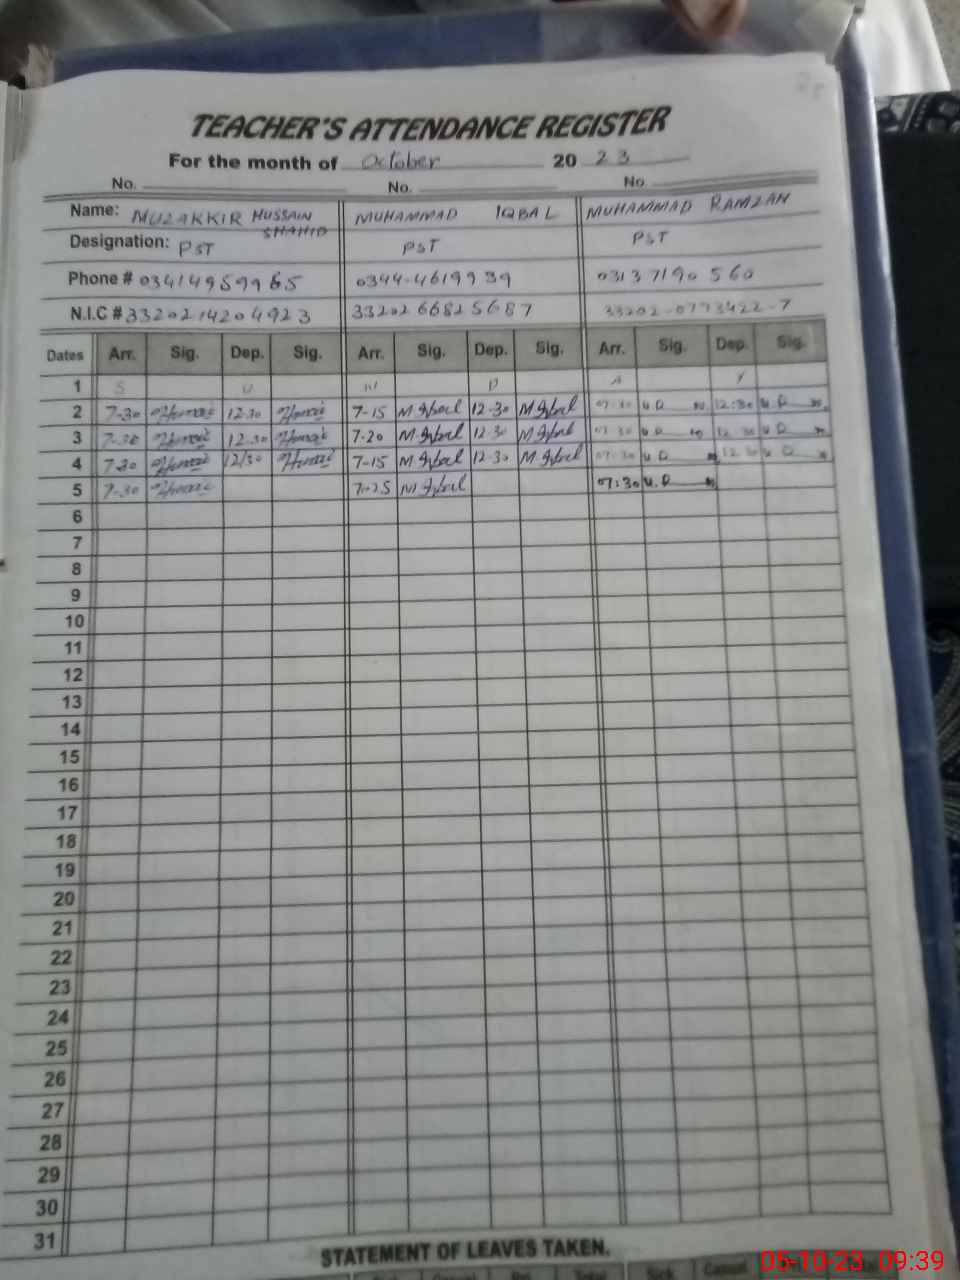 TEACHER'S ATTENDANCE REGISTER
For the month of October 2023
No. No. No.
Name: MUZAKKIR HUSSAIN SHAHID MUHAMMAD IQBAL MUHAMMAD RAMZAN
Designation: PST PST PST
Phone # 03414959965 0344-4619939 03137190560
N.I.C # 3320214204923 3320266825687 33202-0773422-7
Dates Arr. Sig. Dep. Sig. Arr. Sig. Dep. Sig. Arr. Sig. Dep. Sig.
1 S U N D A Y
2 7-30 12-30 7-15 M Iqbal 12-30 M Iqbal 07:30 12:30
3 7-30 12-30 7-20 M Iqbal 12-30 M Iqbal 07:30 12:30
4 7-30 12/30 7-15 M Iqbal 12-30 M Iqbal 07:30 12:30
5 7-30 7-25 M Iqbal 07:30
6
7
8
9
10
11
12
13
14
15
16
17
18
19
20
21
22
23
24
25
26
27
28
29
30
31
STATEMENT OF LEAVES TAKEN.
Sick Casual Total Sick Casual
05-10-23 09:39